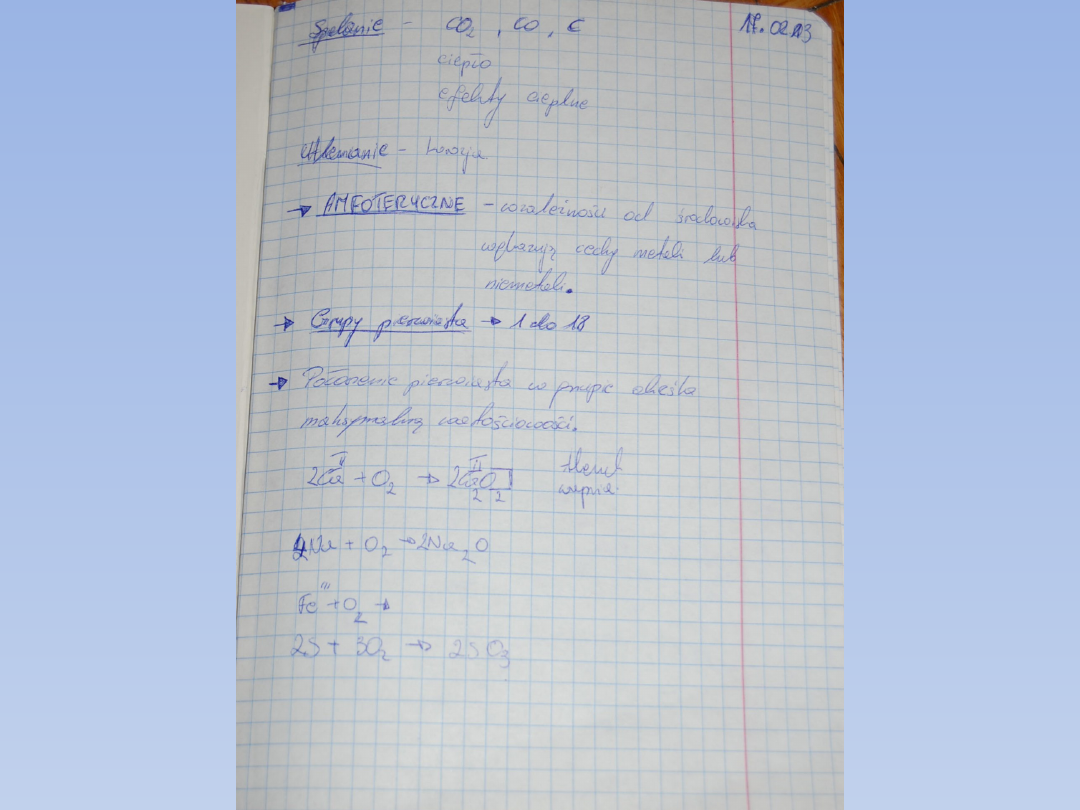 Spalanie - CO2, CO, C 17.02.13
ciepło
efekty cieplne
Utlenianie -
→ AMFOTERYCZNE - w zależności od środowiska
wykazują cechy metali lub
niemetali.
→ Grupy pierwiastka → 1 do 18
→ Położenie pierwiastka w grupie określa
maksymalną wartościowość.
2Ca^II + O2 → 2Ca^II O Tlenek
wapnia
4Na + O2 → 2Na2O
Fe^III + O2 →
2S + 3O2 → 2SO3